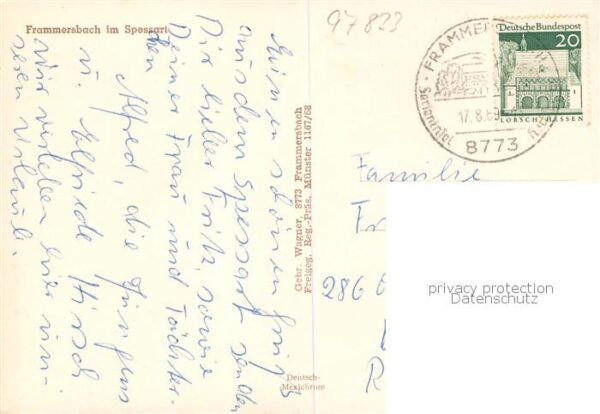 Frammersbach im Spessart
97833
Einen schönen Gruß
aus dem Spessart senden
Dir lieber Fritz, sowie
Deiner Frau und Töchter-
chen
Alfred, die Jungens
u. Elfriede Hirsch
Wir verleben hier un-
seren Urlaub.
Gebr. Wagner, 8773 Frammersbach
Freigeg. Reg.-Präs. Münster 1167/68
Deutsch-
Mexichrom
FRAMMERS
17.8.69
8773
Deutsche Bundespost
20
LORSCH/HESSEN
Familie
F
286
privacy protection
Datenschutz